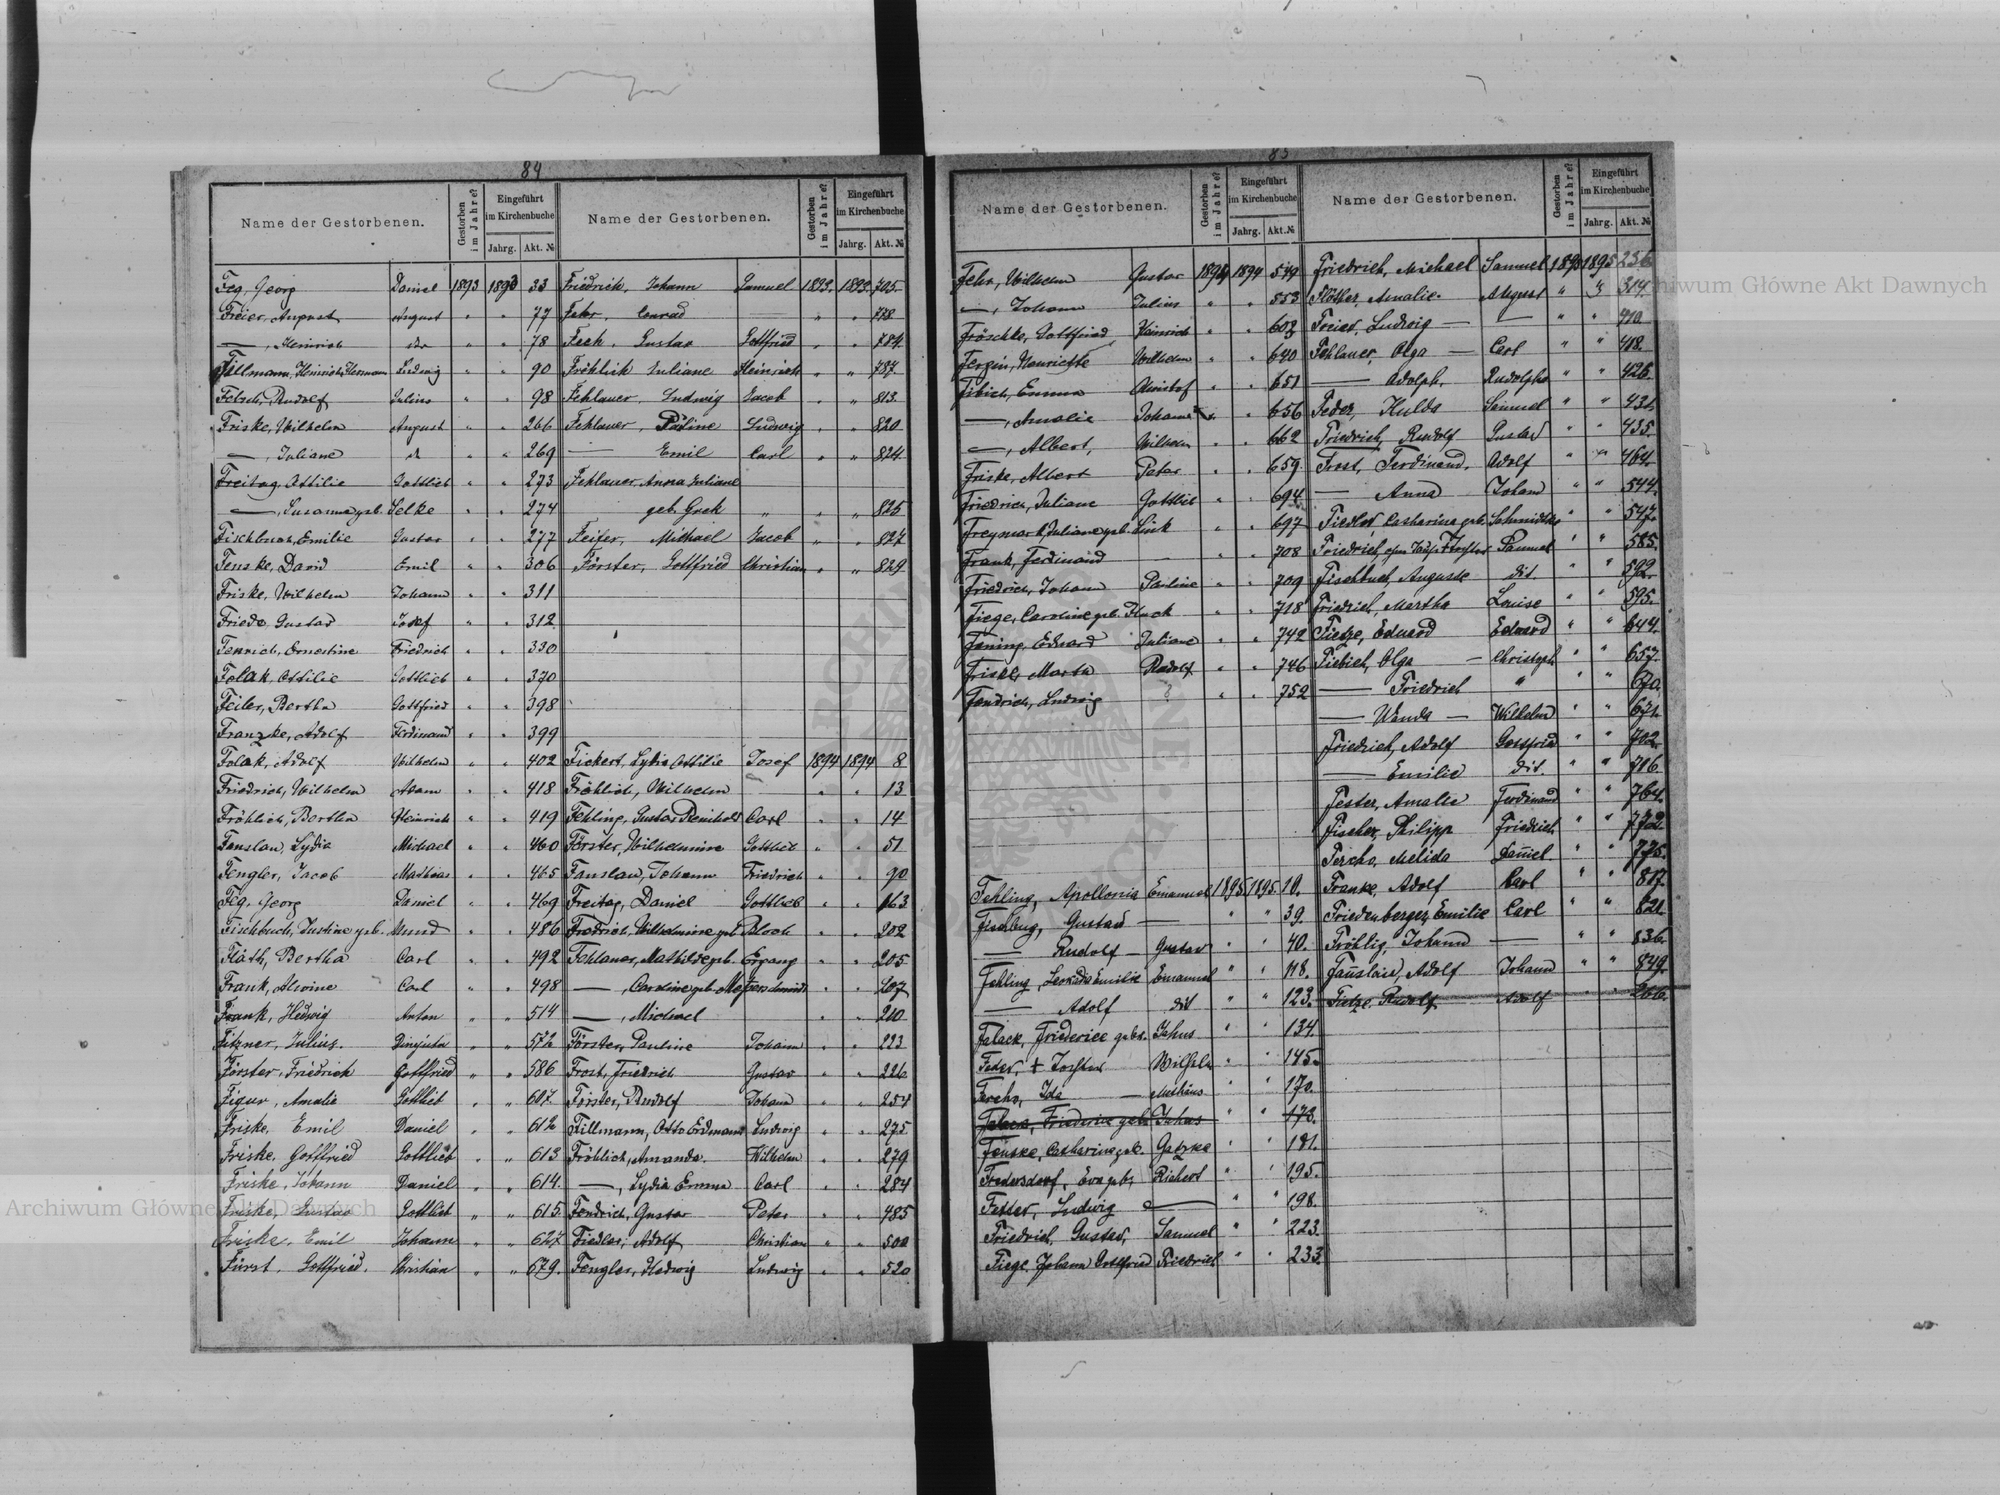 84
Name der Gestorbenen. Gestorben im Jahre? Eingeführt im Kirchenbuche Jahrg. Akt. №
Feg, Georg Daniel 1893 1893 33
Freier, August August " " 77
—, Heinrich dto " " 78
Fillmann, Heinrich Hermann Ludwig " " 90
Fetsch, Rudolf Julius " " 98
Friske, Wilhelm August " " 266
—, Juliane " " 269
Freitag, Ottilie Gottlieb " " 273
—, Susanna geb. Selke " " 274
Fischbuch, Emilie Gustav " " 277
Fenske, David Emil " " 306
Friske, Wilhelm Johann " " 311
Friede, Gustav Josef " " 312
Fenrich, Ernestine Friedrich " " 330
Folak, Ottilie Gottlieb " " 370
Feiler, Bertha Gottfried " " 398
Franzke, Adolf Ferdinand " " 399
Folak, Adolf Wilhelm " " 402
Friedrich, Wilhelm Adam " " 418
Fröhlich, Bertha Heinrich " " 419
Fanslau, Lydia Michael " " 460
Fengler, Jacob Mathias " " 465
Feg, Georg Daniel " " 469
Fischbuch, Justine geb. Mund " " 486
Fláth, Bertha Carl " " 492
Frank, Alwine Carl " " 498
Frank, Hedwig Anton " " 514
Fitzner, Julius. " " 572
Förster, Friedrich Gottfried " " 586
Figur, Amalie Gottlieb " " 607.
Friske, Emil Daniel " " 612
Friske, Gottfried Gottlieb " " 613
Friske, Johann Daniel " " 614.
Friske, Gustav Gottlieb " " 615.
Friske, Emil Johann " " 627.
Fürst, Gottfried. Christian " " 679.
Name der Gestorbenen. Gestorben im Jahre? Eingeführt im Kirchenbuche Jahrg. Akt. №
Friedrich, Johann Samuel 1893. 1893. 705.
Fehr, Conrad — " " 778.
Fech, Gustav Gottfried " " 784.
Fröhlich Juliane Heinrich " " 737.
Fehlauer, Ludwig Jacob " " 813.
Fehlauer, Pauline Ludwig " " 820
— Emil Carl " " 824.
Fehlauer, Anna Juliane
geb. Guck " " " 825
Feifer, Michael Jacob " " 827
Förster, Gottfried Christian " " 829
Fickert, Lydia Ottilie Josef 1894 1894 8
Fröhlich, Wilhelm " " 13
Fehling, Gustav Reinhold Carl " " 14
Förster, Wilhelmine Gottlieb " " 51
Fanslau, Johann Friedrich " " 90
Freitag, Daniel Gottlieb " " 163
Friedrich, Wilhelmine geb. Bloch " " 202
Fehlauer, Mathilde geb. Ergang " " 205
—, Caroline geb. Messerschmidt " " 207
—, Michael " " 210
Förster, Pauline Johann " " 223
Frost, Friedrich Gustav " " 226
Förster, Rudolf Johann " " 254
Fillmann, Otto Erdmann Ludwig " " 275
Fröhlich, Amanda. Wilhelm " " 279
—, Lydia Emma Carl " " 284
Fendrich, Gustav Peter " " 485
Fiedler, Adolf Christian " " 500
Fengler, Hedwig Ludwig " " 520
85
Name der Gestorbenen. Gestorben im Jahre? Eingeführt im Kirchenbuche Jahrg. Akt. №
Fehr, Wilhelm Gustav 1894 1894 549
—, Johann Julius " " 553
Fröschke, Gottfried Heinrich " " 603
Ferzin, Henriette Wilhelm " " 640
Fibich, Emma Christof " " 651
—, Amalie Johann " " 656
—, Albert, Wilhelm " " 662
Friske, Albert Peter " " 659.
Friedrich, Juliane Gottlieb " " 694.
Freymark, Juliane geb. Link " " 697
Frank, Ferdinand — " " 708
Friedrich, Johann Pauline " " 709
Fiege, Caroline geb. Fluck " " 718
Föning, Eduard Juliane " " 742
Friske, Martha Rudolf " " 746
Fendrich, Ludwig ? " " 752
Fehling, Apollonia Emanuel 1895 1895 10.
Fischbug, Gustav — " " 39.
— Rudolf — Gustav " " 40.
Fehling, Leokadia Emilie Emanuel " " 118.
— Adolf dit " " 123.
Falack, Friederice geb. Jahns " " 134.
Feder, + Tochter Wilhelm " " 145.
Fercho, Ida — Mathias " " 170.
Falack, Friederice geb. Jahns " " 173.
Fenske, Catharine geb. Gatzke " " 181.
Fredersdorf, Eva geb. Richert " " 195.
Fetter, Ludwig — " " 198.
Friedrich, Gustav, Samuel " " 223.
Fiege, Johann Gottfried Friedrich " " 233.
Name der Gestorbenen. Gestorben im Jahre? Eingeführt im Kirchenbuche Jahrg. Akt. №
Friedrich, Michael Samuel 1895 1895 236.
Flöther, Amalie. August " " 314.
Freier, Ludwig — — " " 410.
Fehlauer, Olga — Carl " " 418.
— Adolph. Rudolph " " 426.
Feder, Hulda Samuel " " 431.
Friedrich, Rudolf Gustav " " 435.
Frost, Ferdinand. Adolf " " 464.
— Anna Johann " " 544.
Fiedler Catharina geb. Schmidtke " " 547.
Friedrich, Tochter Samuel " " 585.
Fischbuch, Auguste dit. " " 592.
Friedrich, Martha Louise " " 595.
Fietze, Eduard Eduard " " 644.
Fiebich, Olga — Christoph " " 657.
— Friedrich " " " 670.
— Wanda — Wilhelm " " 671.
Friedrich, Adolf Gottfried " " 702.
— Emilie dit. " " 716.
Fester, Amalie Ferdinand " " 764.
Fischer, Philipp Friedrich " " 772.
Fercho, Melida Daniel " " 775.
Franke, Adolf Karl " " 817.
Friedenberger, Emilie Carl " " 821.
Fröhlig, Johann — " " 836.
Fanslau, Adolf Johann " " 849.
Fietze, Rudolf Adolf " " 266.
Archiwum Główne Akt Dawnych
Archiwum Główne Akt Dawnych